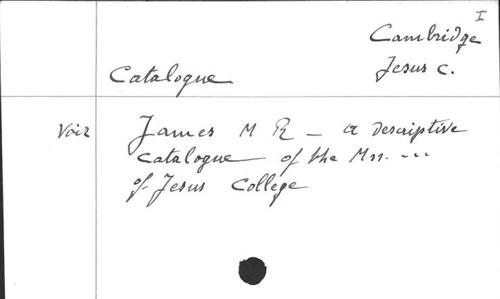 I
Cambridge
Jesus C.
Catalogue
Voir James M R _ a descriptive
catalogue of the Mss. ...
of Jesus College